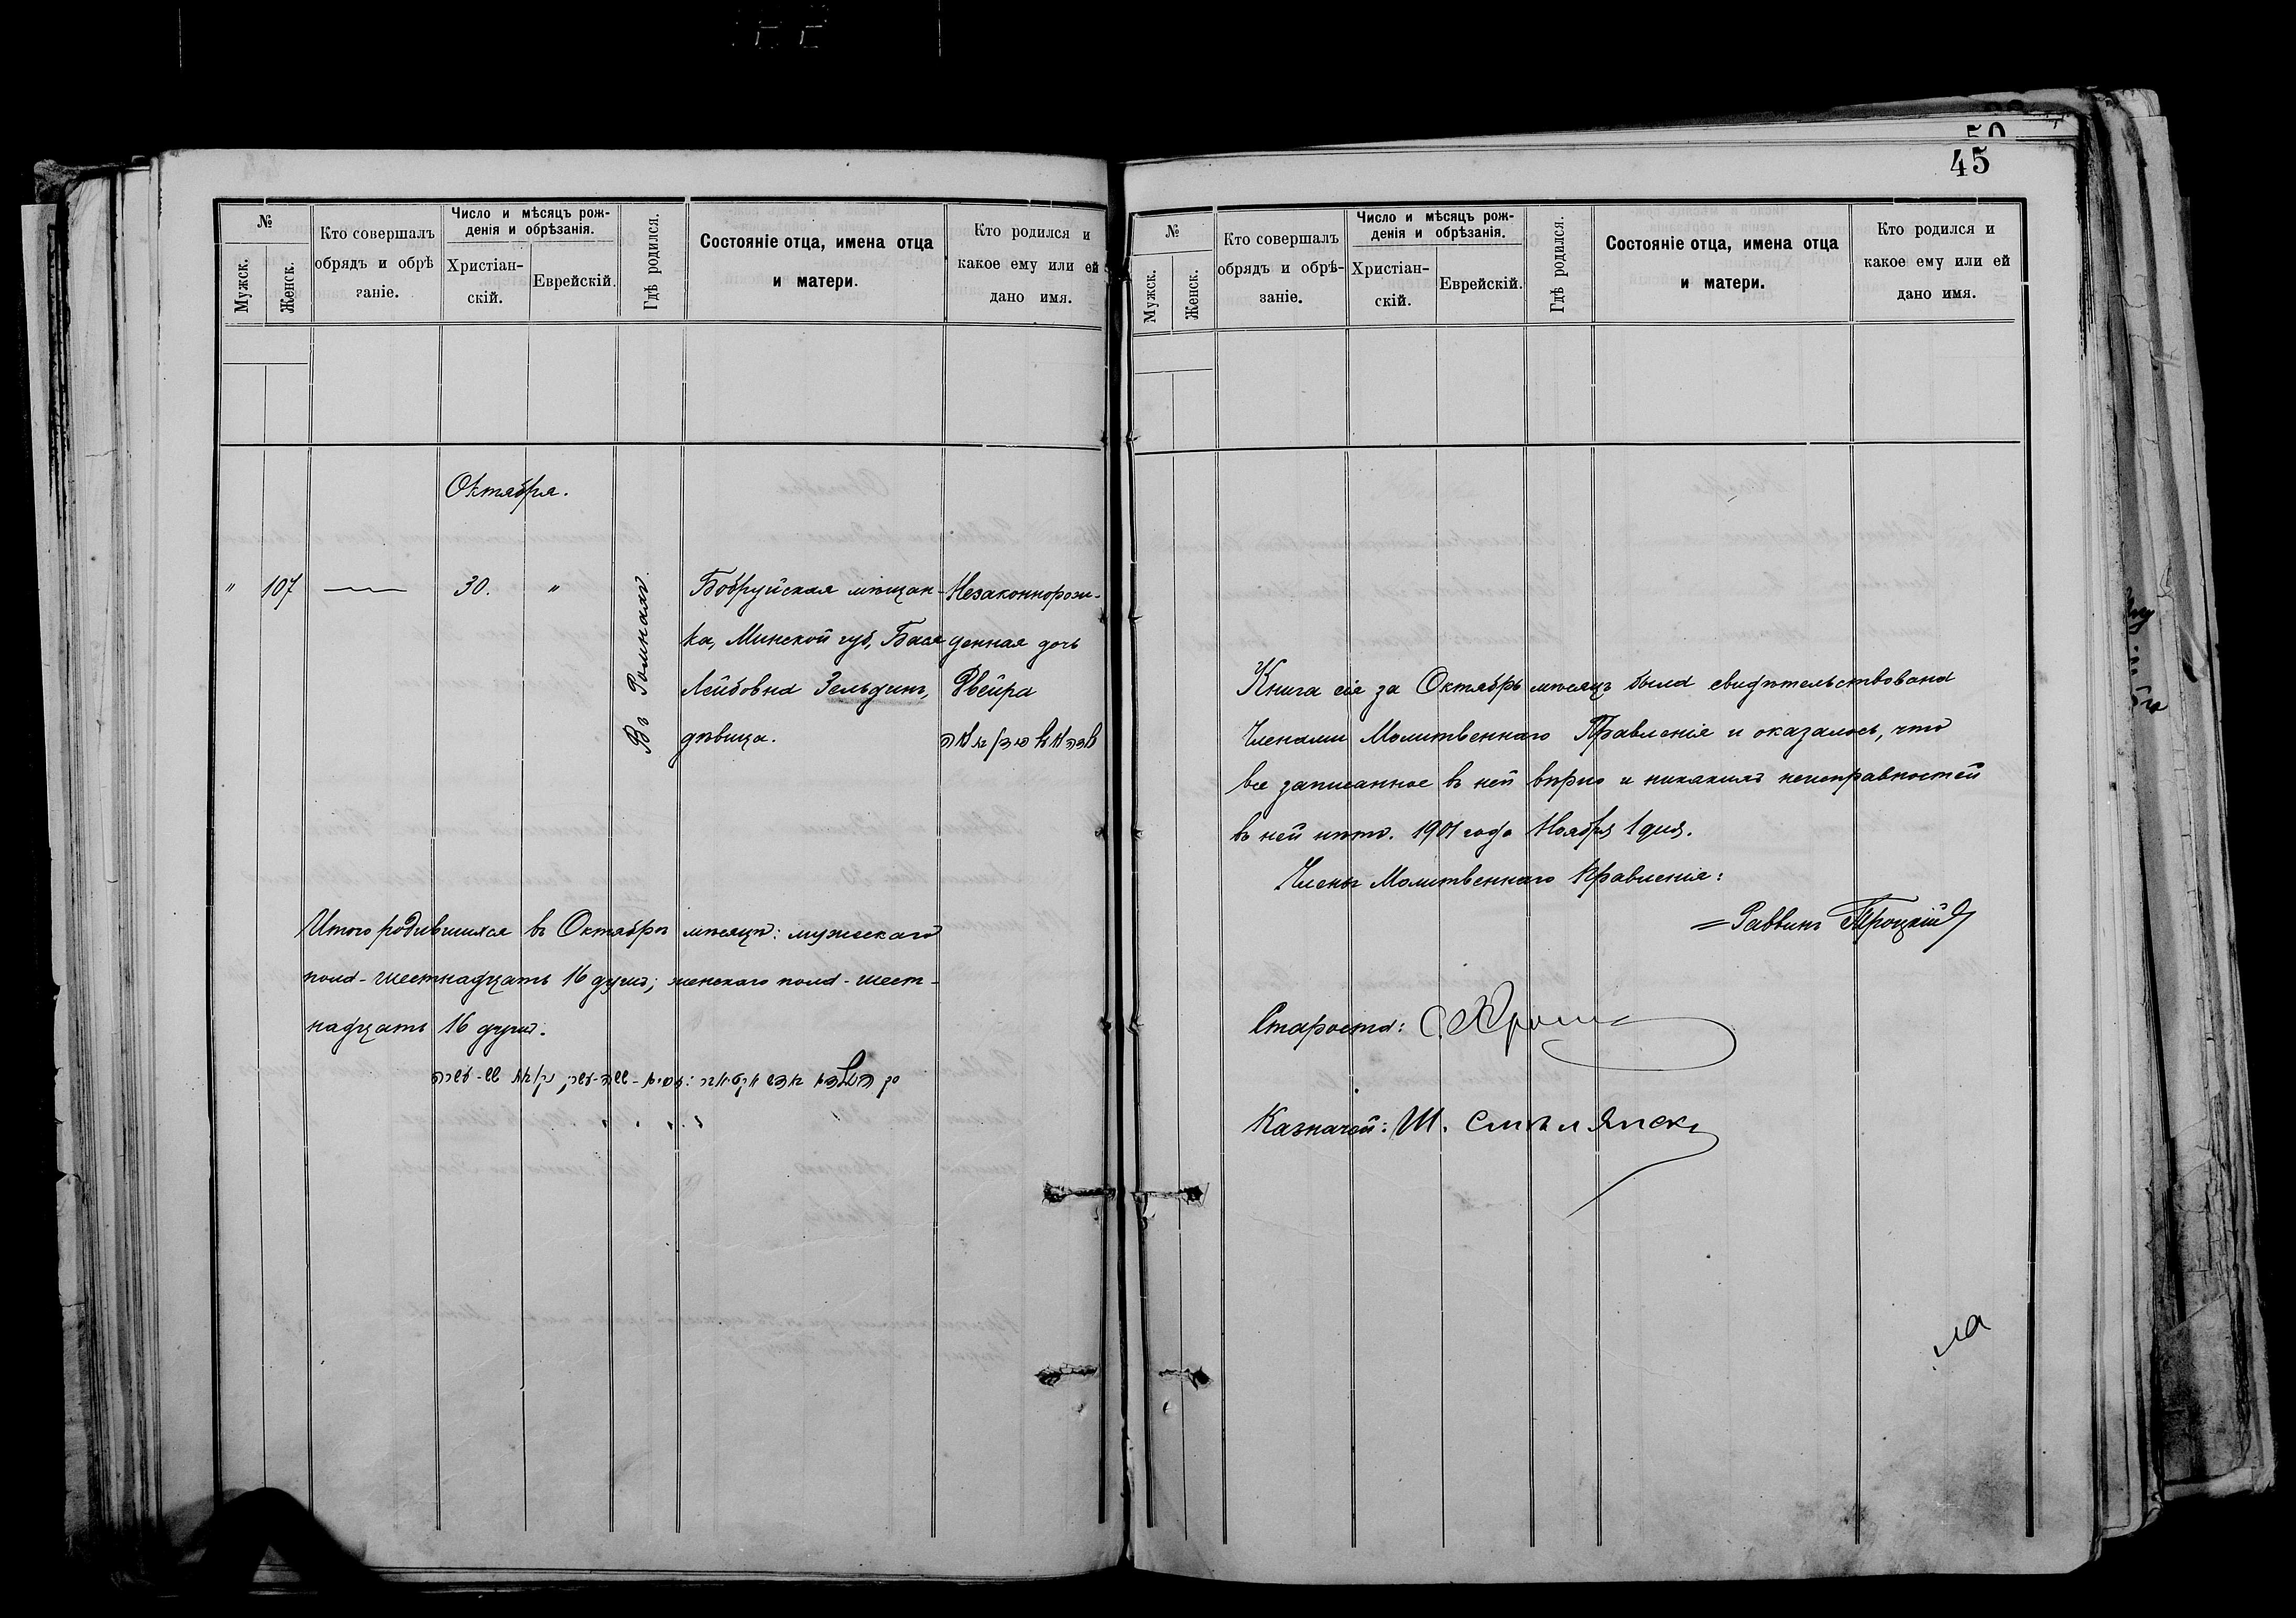 50
45
№
Мужск.
Женск.
Кто совершалъ
обрядъ и обрѣ
заніе.
Число и мѣсяцъ рож-
денія и обрѣзанія.
Христіан-
скій.
Еврейскій.
Гдѣ родился.
Состояніе отца, имена отца
и матери.
Кто родился и
какое ему или ей
дано имя.
Октября.
" 107 — 30. "
Въ Ромнахъ
Бобруйская мѣщан-
ка, Минской губ, Бася
Лейбовна Зельдинъ,
дѣвица.
Незаконнорож-
денная дочь
Двейра
Итого родившихся въ Октябрѣ мѣсяцѣ: мужескаго
пола - шестнадцать 16 душъ; женскаго пола - шест-
надцать 16 душъ.
№
Мужск.
Женск.
Кто совершалъ
обрядъ и обрѣ-
заніе.
Число и мѣсяцъ рож-
денія и обрѣзанія.
Христіан-
скій.
Еврейскій.
Гдѣ родился.
Состояніе отца, имена отца
и матери.
Кто родился и
какое ему или ей
дано имя.
Книга сія за Октябрь мѣсяцъ была свидѣтельствована
Членами Молитвеннаго Правленія и оказалось, что
все записанное въ ней вѣрно и никакихъ неисправностей
въ ней нѣтъ. 1901 года Ноября 1 дня.
Члены Молитвеннаго Правленія:
Раввинъ Троцкій
Староста:
Казначей: Ш. Смѣлянск